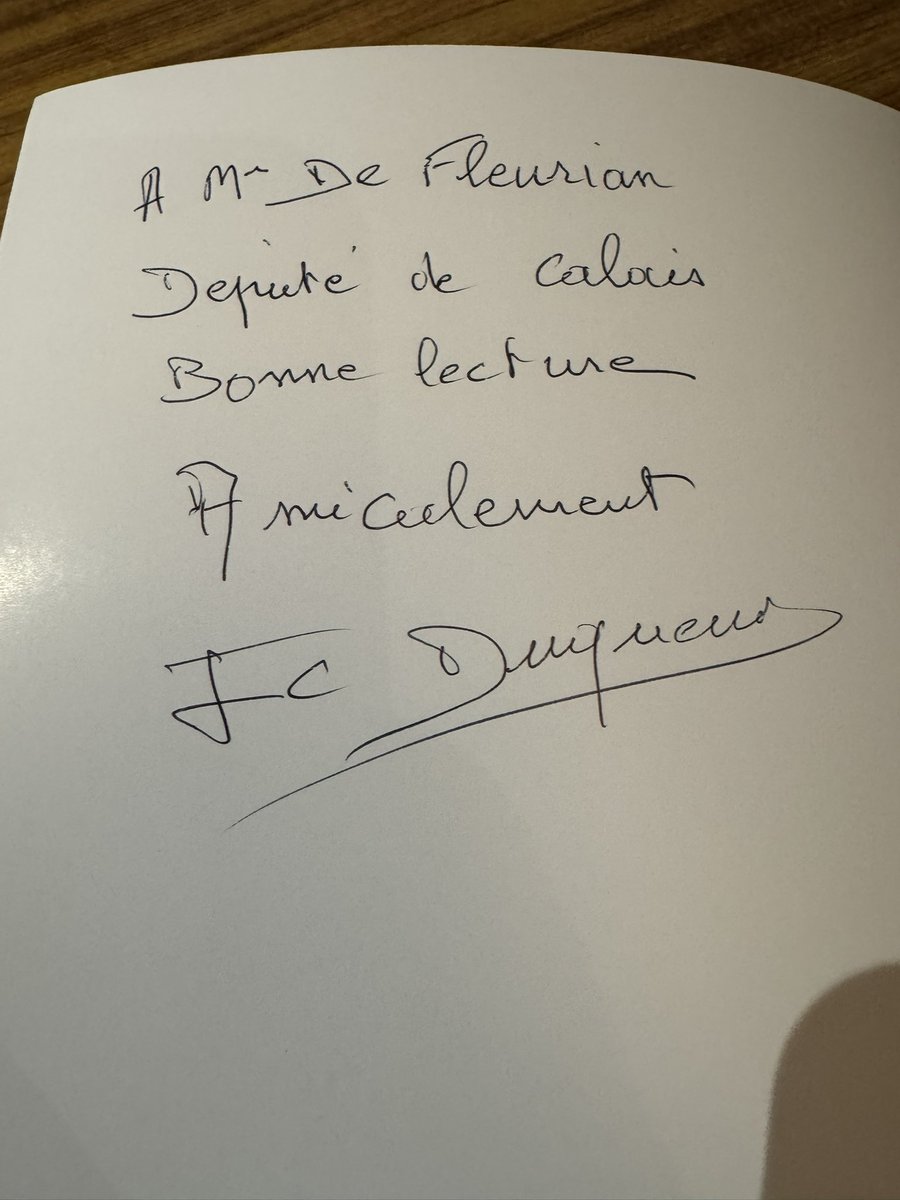 A Mr De Fleurian
Député de Calais
Bonne lecture
Amicalement
JC